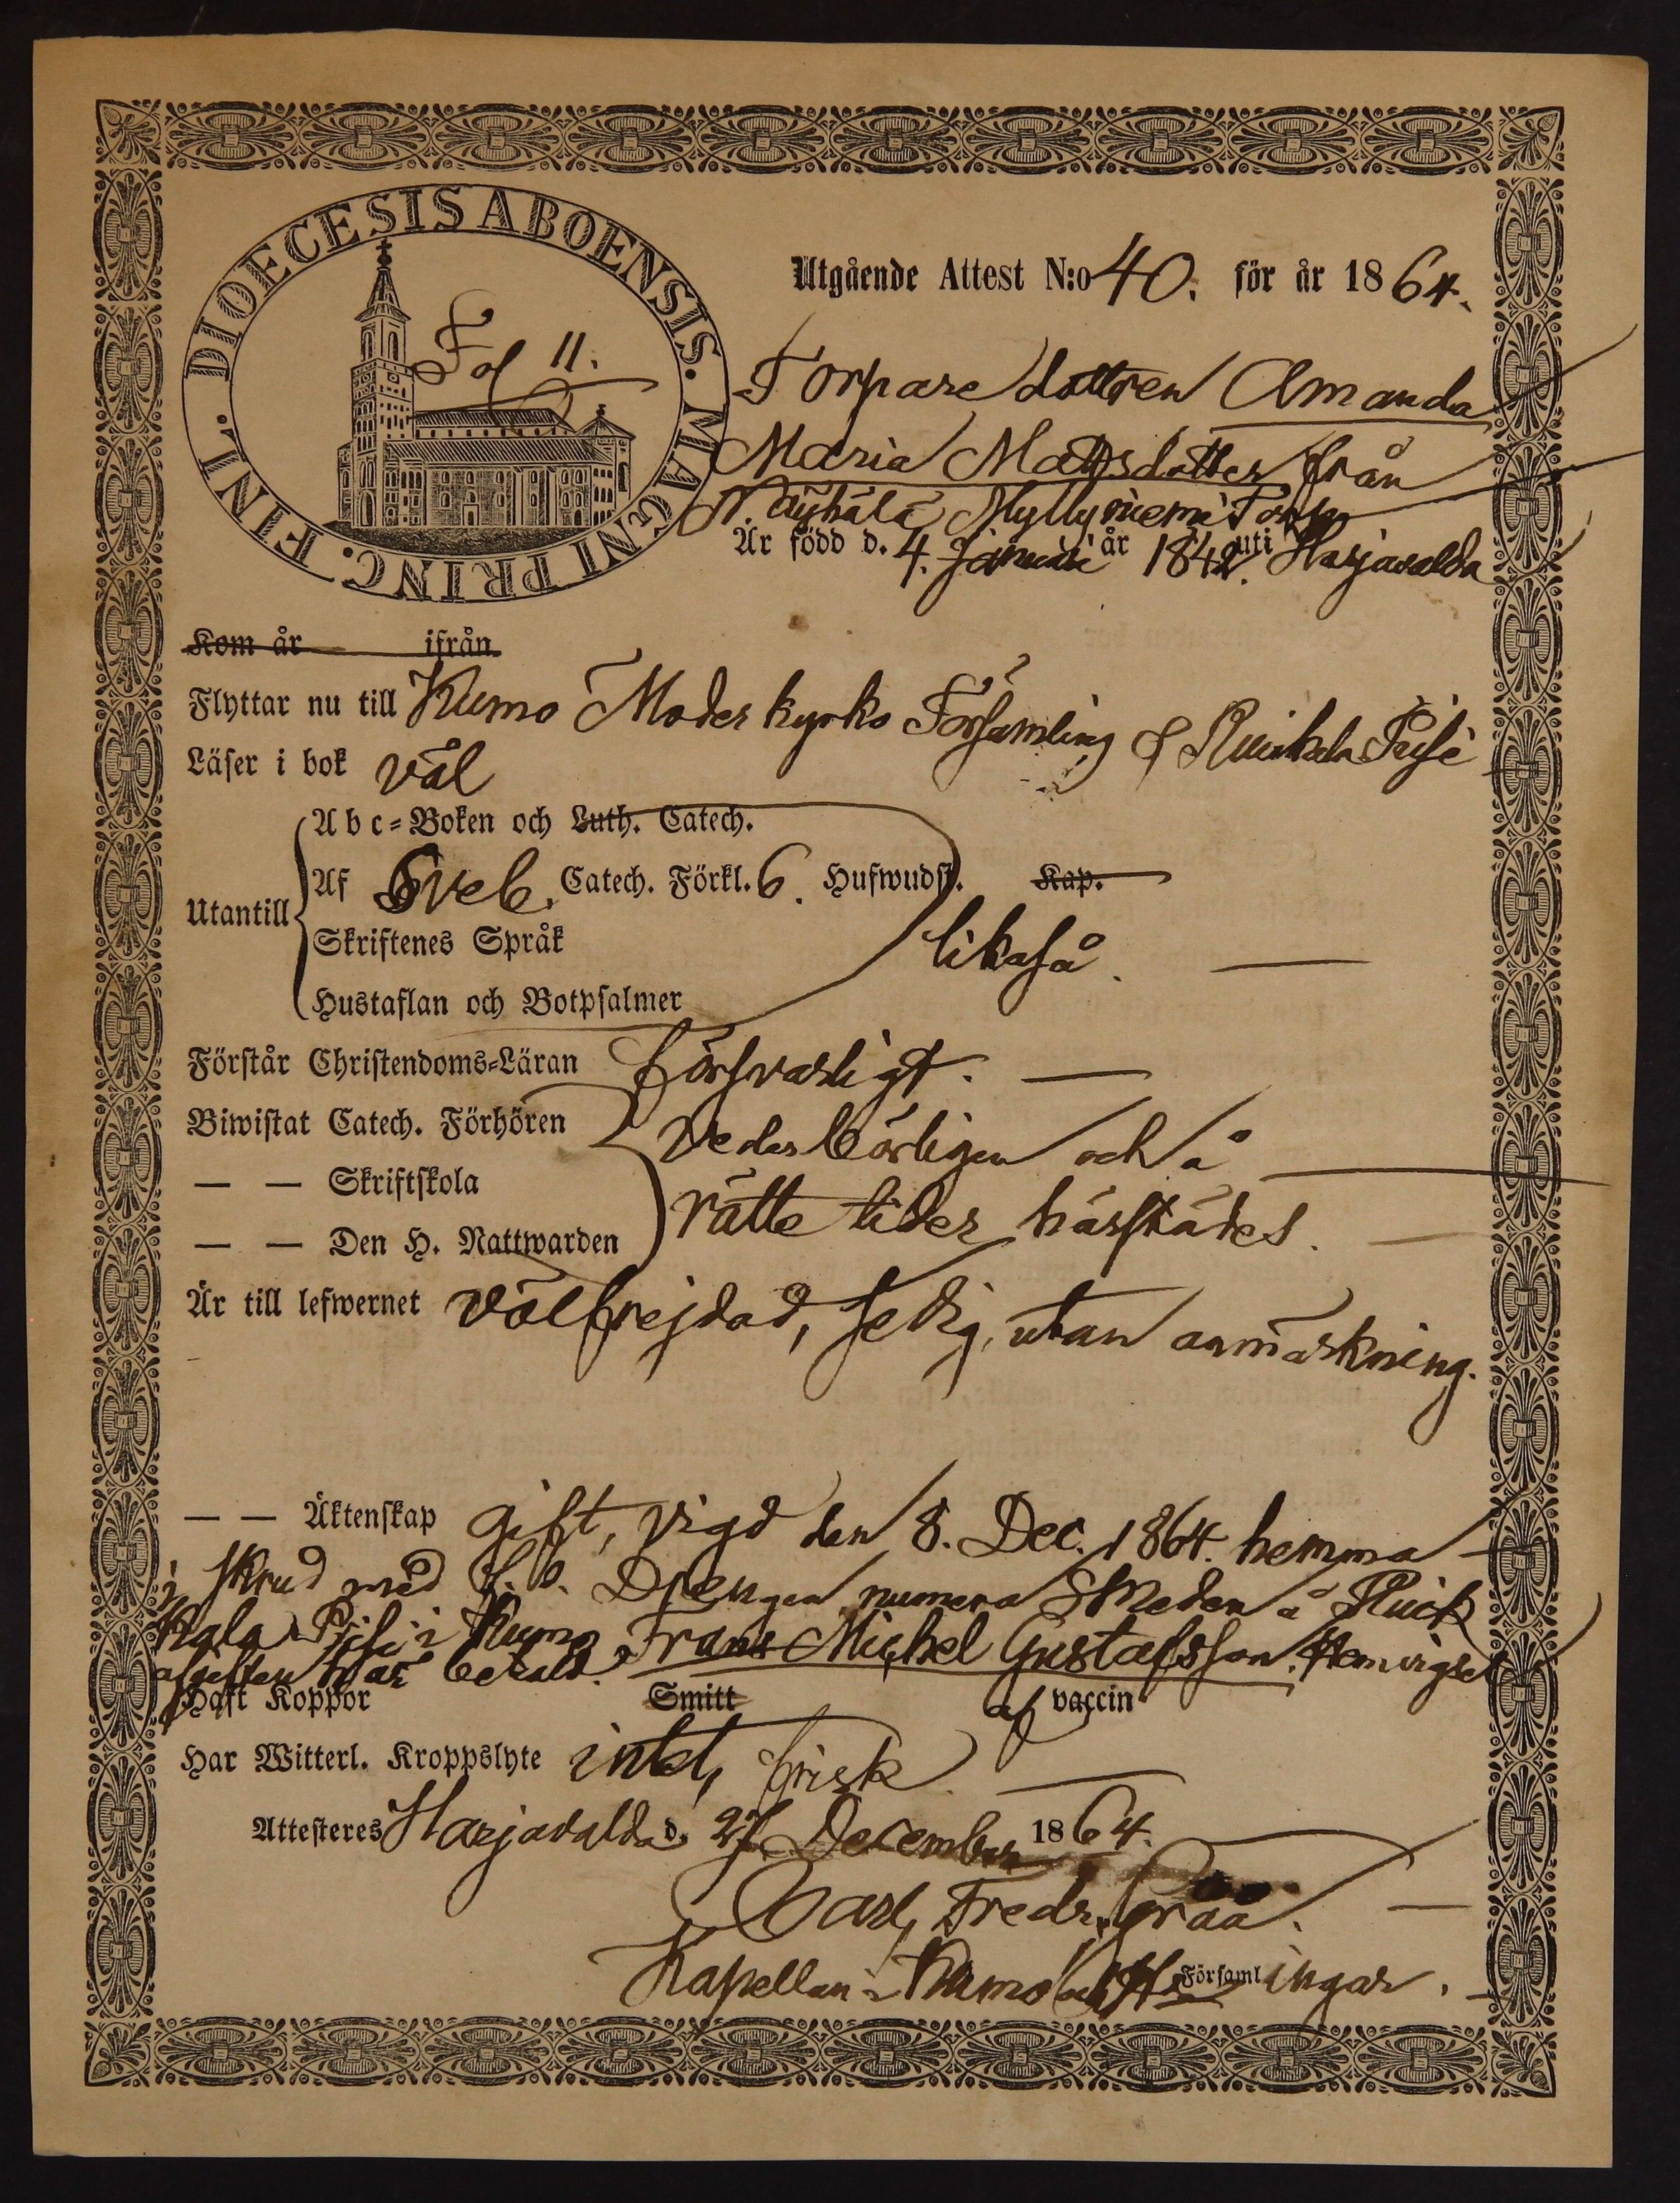 DIOECESIS ABOENSIS. MAGNI PRINC. FINL.
Fol 11.
Utgående Attest N:o 40. för år 1864.
Torpare dottren Amanda
Maria Mattsdotter från
Myllyniemi Torp
Är född d. 4. Januari år 1842. uti Harjavalda
Kom år ifrån
Flyttar nu till Kumo Moderkyrko Församling &
Läser i bok väl
Utantill
Abc=Boken och Luth. Catech.
Af Sveb. Catech. Förkl. 6. Hufwudst. Kap.
Skriftenes Språk likaså.
Hustaflan och Botpsalmer
Förstår Christendoms=Läran försvarligt.
Biwistat Catech. Förhören vederbörligen och å
— — Skriftskola
— — Den H. Nattwarden rätte tider härstädes.
Är till lefwernet välfrejdad, ledig, utan anmärkning.
— — Äktenskap gift, vigd den 8. Dec. 1864. hemma
i skrud med Drengen numera Smeden å Ruik
kala i Kumo Frans Michel Gustafsson. Hemvigsel
afgiften är betald.
Haft Koppor Smitt af vaccin
Har Witterl. Kroppslyte intet, frisk
Attesteres Harjavalda d. 27 December 1864.
Carl Fredr. Grää.
Kapellan i Kumo och Församlingar.